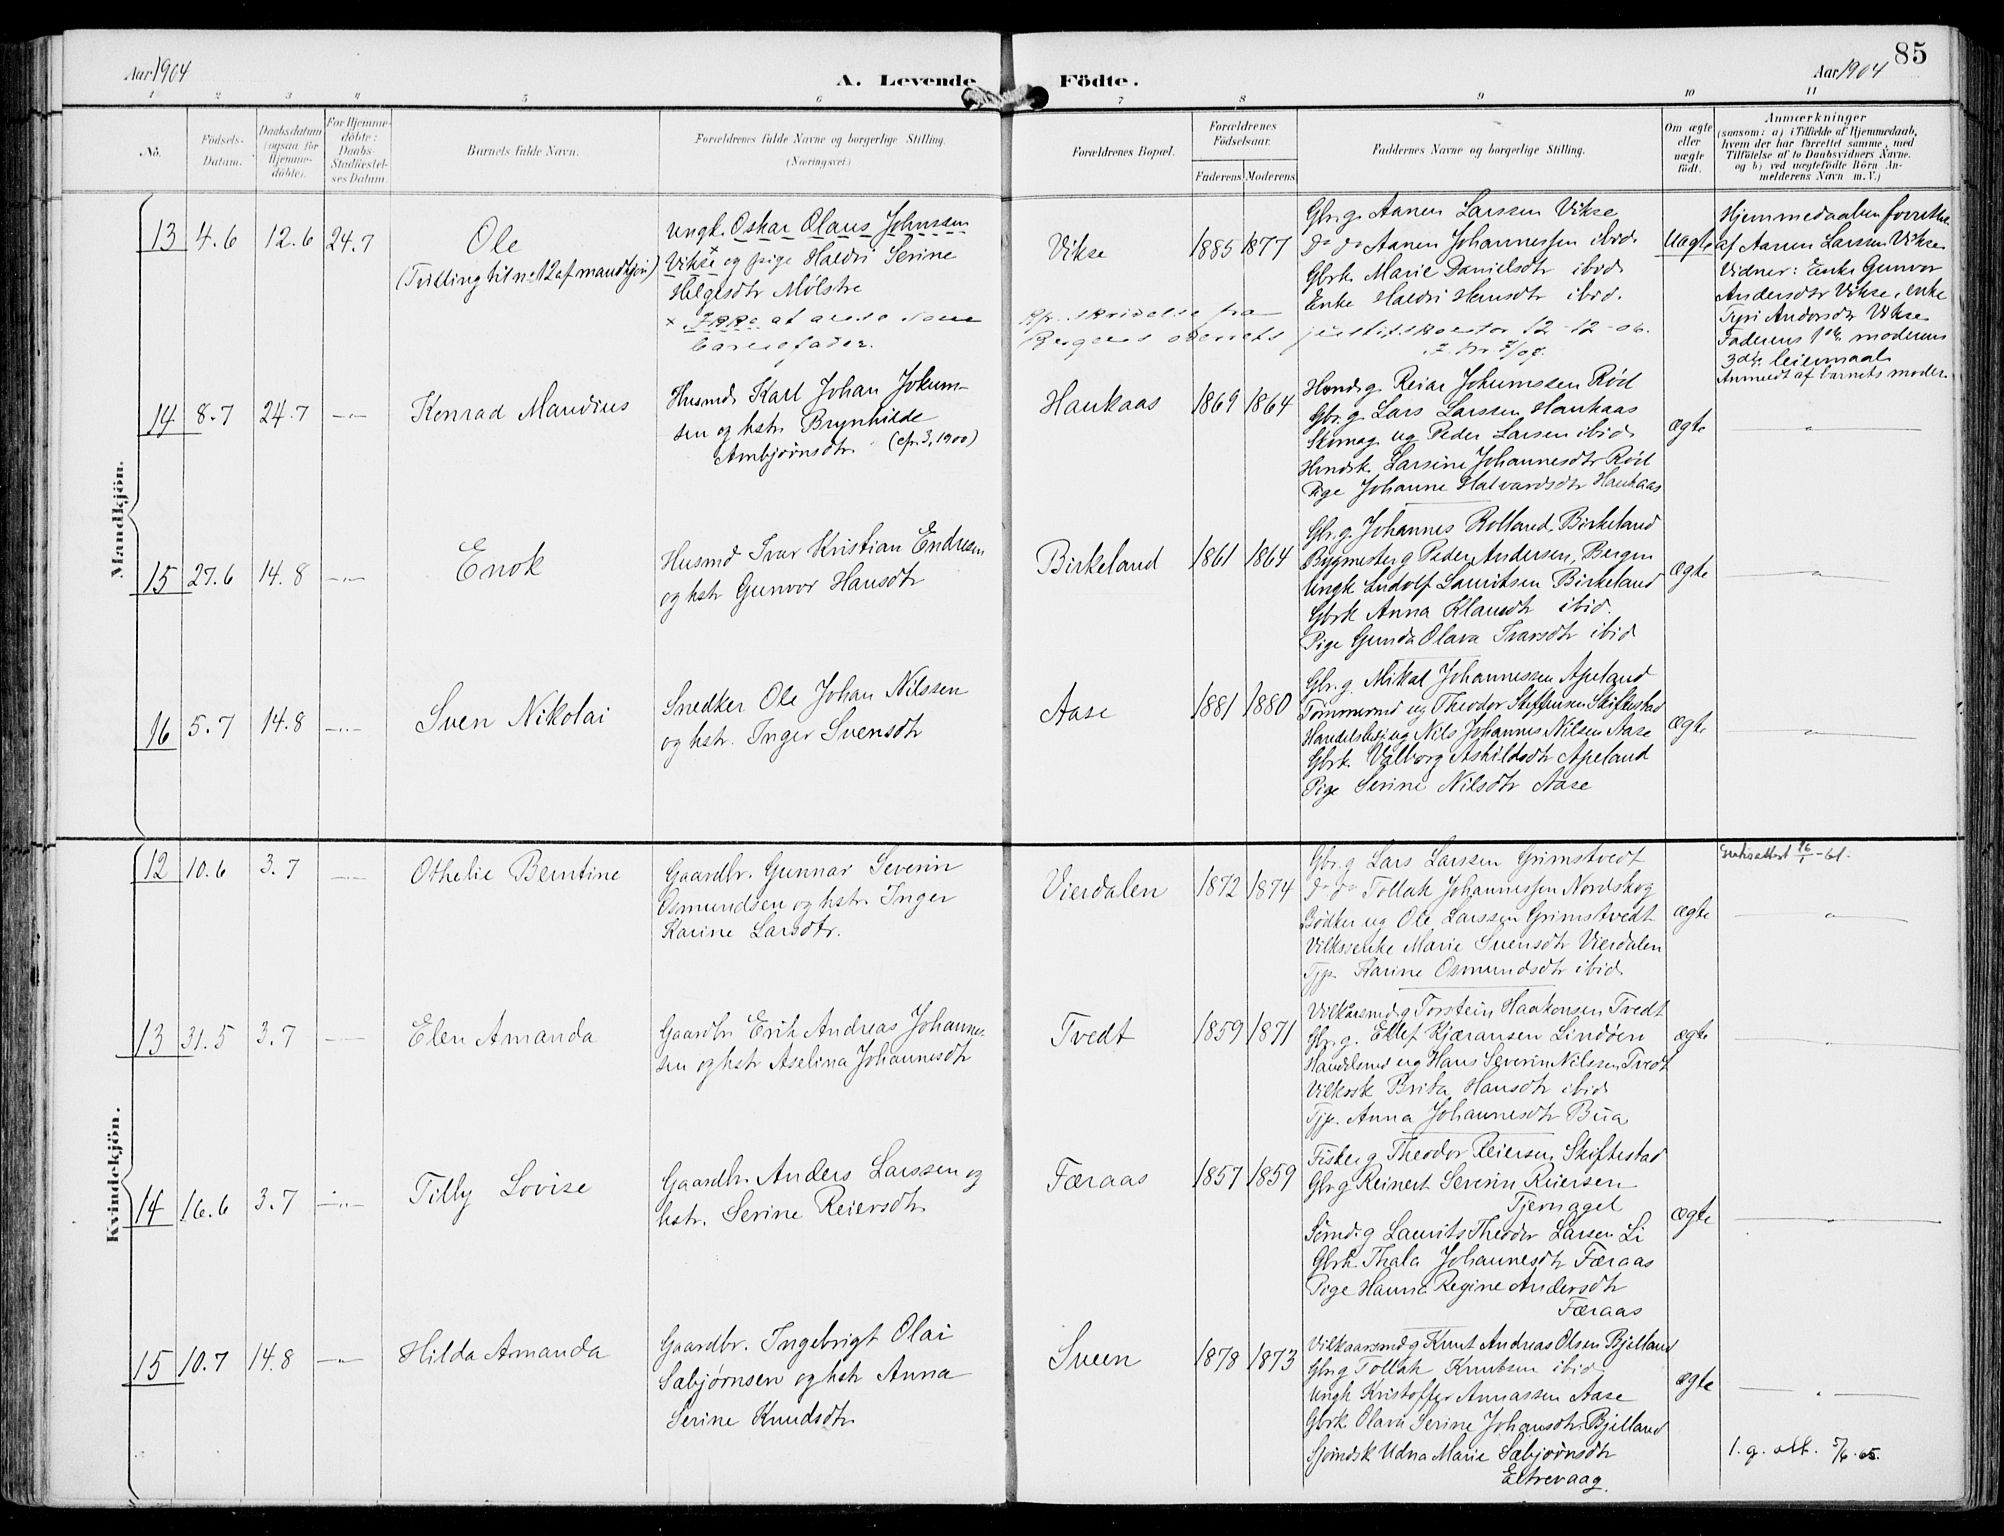 Aar 1904
A. Levende Födte.
Aar 1904
85
1 2 3 4 5 6 7 8 9 10 11
No.
Födsels-Datum.
Daabsdatum (ogsaa for Hjemme-döbte).
For Hjemme-döbte: Daabs-Stadfæstel-ses Datum.
Barnets fulde Navn.
Forældrenes fulde Navne og borgerlige Stilling.
(Næringsvei.)
Forældrenes Bopæl.
Forældrenes Födselsaar.
Faderens. Moderens.
Faddernes Navne og borgerlige Stilling.
Om ægte eller uægte födt.
Anmærkninger
(saasom: a) i Tilfælde af Hjemmedaab, hvem der har forrettet samme, med Tilföielse af to Daabsvidners Navne, og b) ved uægtefödte Börn An-melderens Navn m. V.)
Mandkjön.
13 4.6 12.6 24.7
Ole
(Tvilling til no 12 af mandkjön)
Ungk. Oskar Olaus Johnssen
Vikse og pige Haldri Serine
Helgesdtr Mølstre
x Ikke at anse some
barnefader.
Vikse
1885 1877
Gbr.g. Aanen Larssen Vikse
do do Aanen Johannessen ibid.
Gbrk. Marie Danielsdtr ibid
Enke Haldri Hansdtr ibid.
Kfr. skrivelse fra
Bergens overrets justitskontor 12-12-06.
Uægte
Hjemmedaaben forrettet
af Aanen Larssen Vikse
Vidner: Enke Gunvor
Andersdtr Vikse, enke
Tyri Andersdtr Vikse
Faderens 1ste moderens
3die leiermaal
Anmeldt af barnets moder.
14 8.7 24.7 -"-
Konrad Mandius
Husmd. Karl Johan Jokum-
sen og hstr. Brynhilde
Ambjørnsdtr. (cfr. 3, 1900)
Haukaas
1869 1864
Hmd. g. Reiar Jokumssen Rød
Gbr.g. Lars Larssen Haukaas
Skomag. ug Peder Larsen ibid.
Hmdsk. Larsine Johannesdtr Rød
Pige Johanne Halvardsdtr Haukaas
ægte
-"-
15 27.6 14.8 -"-
Enok
Husmd Ivar Kristian Endresen
og hstr Gunvor Hansdtr
Birkeland
1861 1864
Gbr.g. Johannes Rolland, Birkeland
Bygmester g Peder Andersen, Bergen
Ungk Ludolf Lauritsen Birkeland
Gbrk Anna Klausdtr ibid.
Pige Gunda Olava Ivarsdtr ibid
ægte
-"-
16 5.7 14.8 -"-
Sven Nikolai
Snedker Ole Johan Nilssen
og hstr. Inger Svensdtr
Aase
1881 1880
Gbr.g. Mikal Johannessen Apeland
Tømmermd ug Theodor Steffensen Skiftestad
Handelsbetj ug Nils Johannes Nilsen Aase
Gbrk. Valborg Askildsdtr Apeland
Pige Serine Nilsdtr Aase
ægte
-"-
Kvindekjön.
12 10.6 3.7
Othelie Berntine
Gaardbr. Gunnar Severin
Osmundsen og hstr. Inger
Karine Larsdtr.
Vierdalen
1872 1874
Gbr.g Lars Larssen Grimstvedt
do do Tollak Johannessen Nordskog
Bødker ug Ole Larssen Grimstvedt
Vilkaarsenke Marie Svensdtr Vierdalen
Tjp. Karine Osmundsdtr ibid.
ægte
-"-
13 31.5 3.7
Elen Amanda
Gaardbr Erik Andreas Johannes-
sen og hstr Aselina Johannesdtr
Tvedt
1859 1871
Vilkårsmd g Torstein Haakonsen Tvedt
Gbr.g. Ellef Kjæransen Lindøen
Handelsmd ug Hans Severin Nilssen Tvedt
Vilkarsk Brita Hansdtr ibid
Tjp. Anna Johannesdtr Bua
ægte
-"-
14 16.6 3.7 -"-
Tilly Lovise
Gaardbr. Anders Larssen og
hstr. Serine Reiersdtr
Færaas
1857 1859
Fisker g Theodor Reiersen Skiftestad
Gbr g Reinert Severin Reiersen
Tjernagel
Sømd. g Laurits Theodor Larsen Li
Gbrk Thala Johannesdtr Færaas
Pige Hanne Regine Andersdtr
Færaas
ægte
-"-
15 10.7 14.8 -"-
Hilda Amanda
Gaardbr. Ingebrigt Olai
Sabjørnsen og hstr Anna
Serine Knudsdtr
Sveen
1878 1873
Vilkaarsmd g Knut Andreas Olsen Bjelland
Gbr g Tollak Knutsen ibid
Ungk Kristoffer Annassen Aase
Gbrk Olava Serine Johansdtr Bjelland
Sjømdsk Udna Marie Sabjørnsdtr
Eltrevaag.
ægte
-"-
1. g. att. 5/6-65.